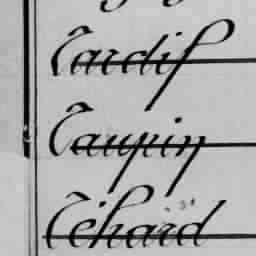 Tardif
Taupin
Téhard